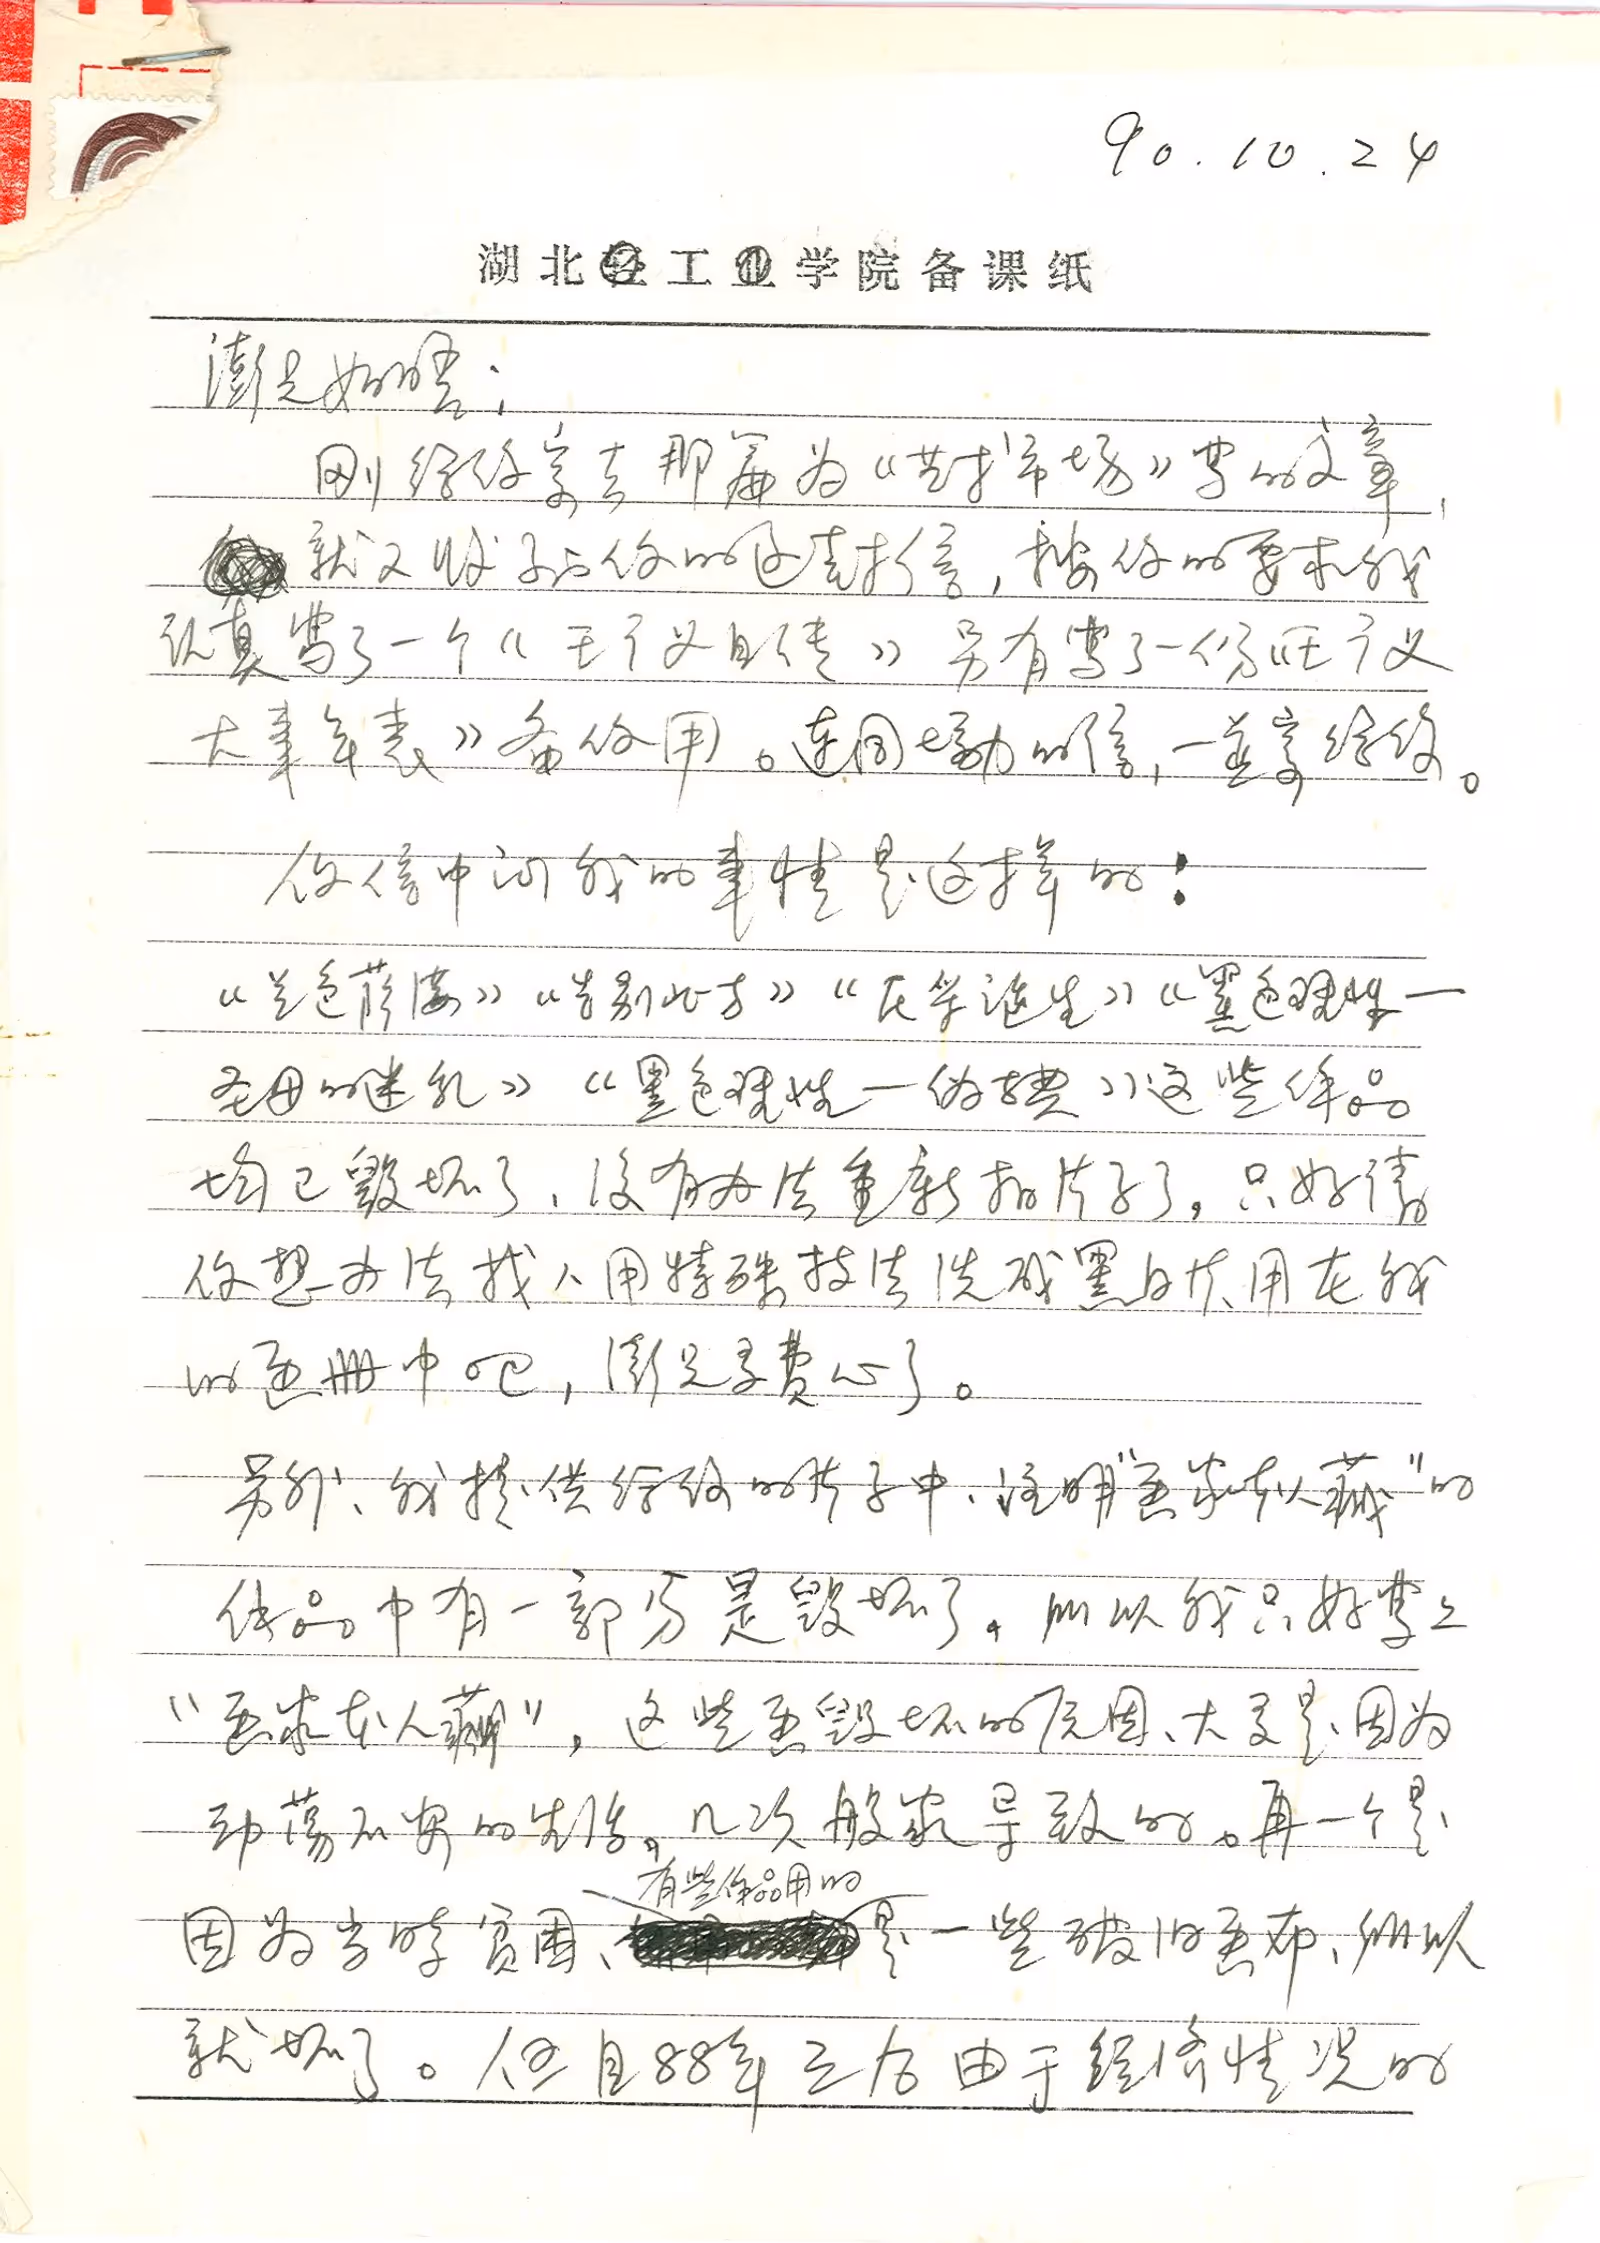 90.10.24
湖北轻工业学院备课纸
澎兄如晤:
刚给你寄去那篇为《艺术市场》写的文章,
就又收到你的这封信,按你的要求我
认真写了一个《王广义自传》另有写了一份《王广义
大事年表》备你用。连同的信,一并寄给你。
你信中问我的事情是这样的:
《兰色薛涛》《告别北方》《在学诞生》《黑色理性—
圣母的迷乱》《黑色理性—伪典》这些作品
均已毁坏了、没有办法重新拍片子了。只好请
你想办法找人用特殊技法洗成黑白片用在我
的画册中吧,澎兄多费心了。
另外、我提供给你的片子中、注明“画家本人藏”的
作品中有一部分是毁坏了。所以我只好写上
“画家本人藏”,这些画毁坏的原因、大多是因为
动荡不安的生活。几次搬家导致的。再一个是
有些作品用的
因为当时贫困、是一些破旧画布、所以
就坏了。但自88年之后由于经济情况的